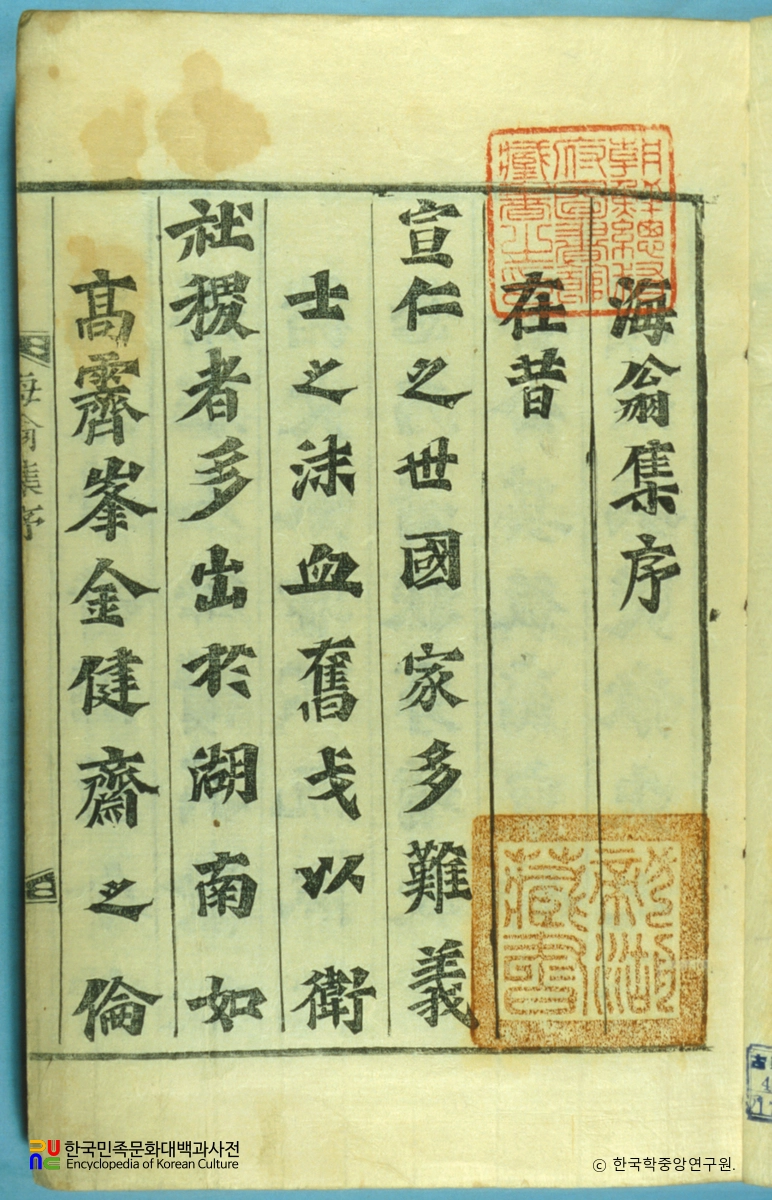 海翁集序
在昔
宣仁之世國家多難義
士之沬血奮戈以衛
社稷者多出於湖南如
高霽峯金健齋之倫
海翁集序
朝鮮總督
府圖書館
藏書之印
藏書
古
4
한국민족문화대백과사전
Encyclopedia of Korean Culture
© 한국학중앙연구원.